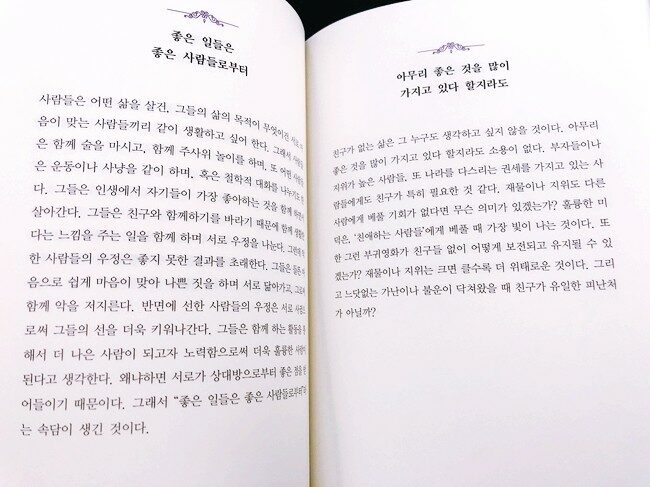 좋은 일들은
좋은 사람들로부터
사람들은 어떤 삶을 살건, 그들의 삶의 목적이 무엇이건 서로
음이 맞는 사람들끼리 같이 생활하고 싶어 한다. 그래서
은 함께 술을 마시고, 함께 주사위 놀이를 하며, 또 어떤
은 운동이나 사냥을 같이 하며, 혹은 철학적 대화를 나누기도
다. 그들은 인생에서 자기들이 가장 좋아하는 것을 함께 하며
살아간다. 그들은 친구와 함께하기를 바라기 때문에 함께
다는 느낌을 주는 일을 함께 하며 서로 우정을 나눈다.
한 사람들의 우정은 좋지 못한 결과를 초래한다. 그들은
음으로 쉽게 마음이 맞아 나쁜 짓을 하며 서로 닮아가고,
함께 악을 저지른다. 반면에 선한 사람들의 우정은 서로
로써 그들의 선을 더욱 키워나간다. 그들은 함께 하는 활동을
해서 더 나은 사람이 되고자 노력함으로써 더욱 훌륭한
된다고 생각한다. 왜냐하면 서로가 상대방으로부터 좋은 점을
어들이기 때문이다. 그래서 “좋은 일들은 좋은 사람들로부터”
는 속담이 생긴 것이다.
아무리 좋은 것을 많이
가지고 있다 할지라도
친구가 없는 삶은 그 누구도 생각하고 싶지 않을 것이다. 아무리
좋은 것을 많이 가지고 있다 할지라도 소용이 없다. 부자들이나
지위가 높은 사람들, 또 나라를 다스리는 권세를 가지고 있는 사
람들에게도 친구가 특히 필요한 것 같다. 재물이나 지위도 다른
사람에게 베풀 기회가 없다면 무슨 의미가 있겠는가? 훌륭한 미
덕은, ‘친애하는 사람들’에게 베풀 때 가장 빛이 나는 것이다. 또
한 그런 부귀영화가 친구들 없이 어떻게 보전되고 유지될 수 있
겠는가? 재물이나 지위는 크면 클수록 더 위태로운 것이다. 그리
고 느닷없는 가난이나 불운이 닥쳐왔을 때 친구가 유일한 피난처
가 아닐까?